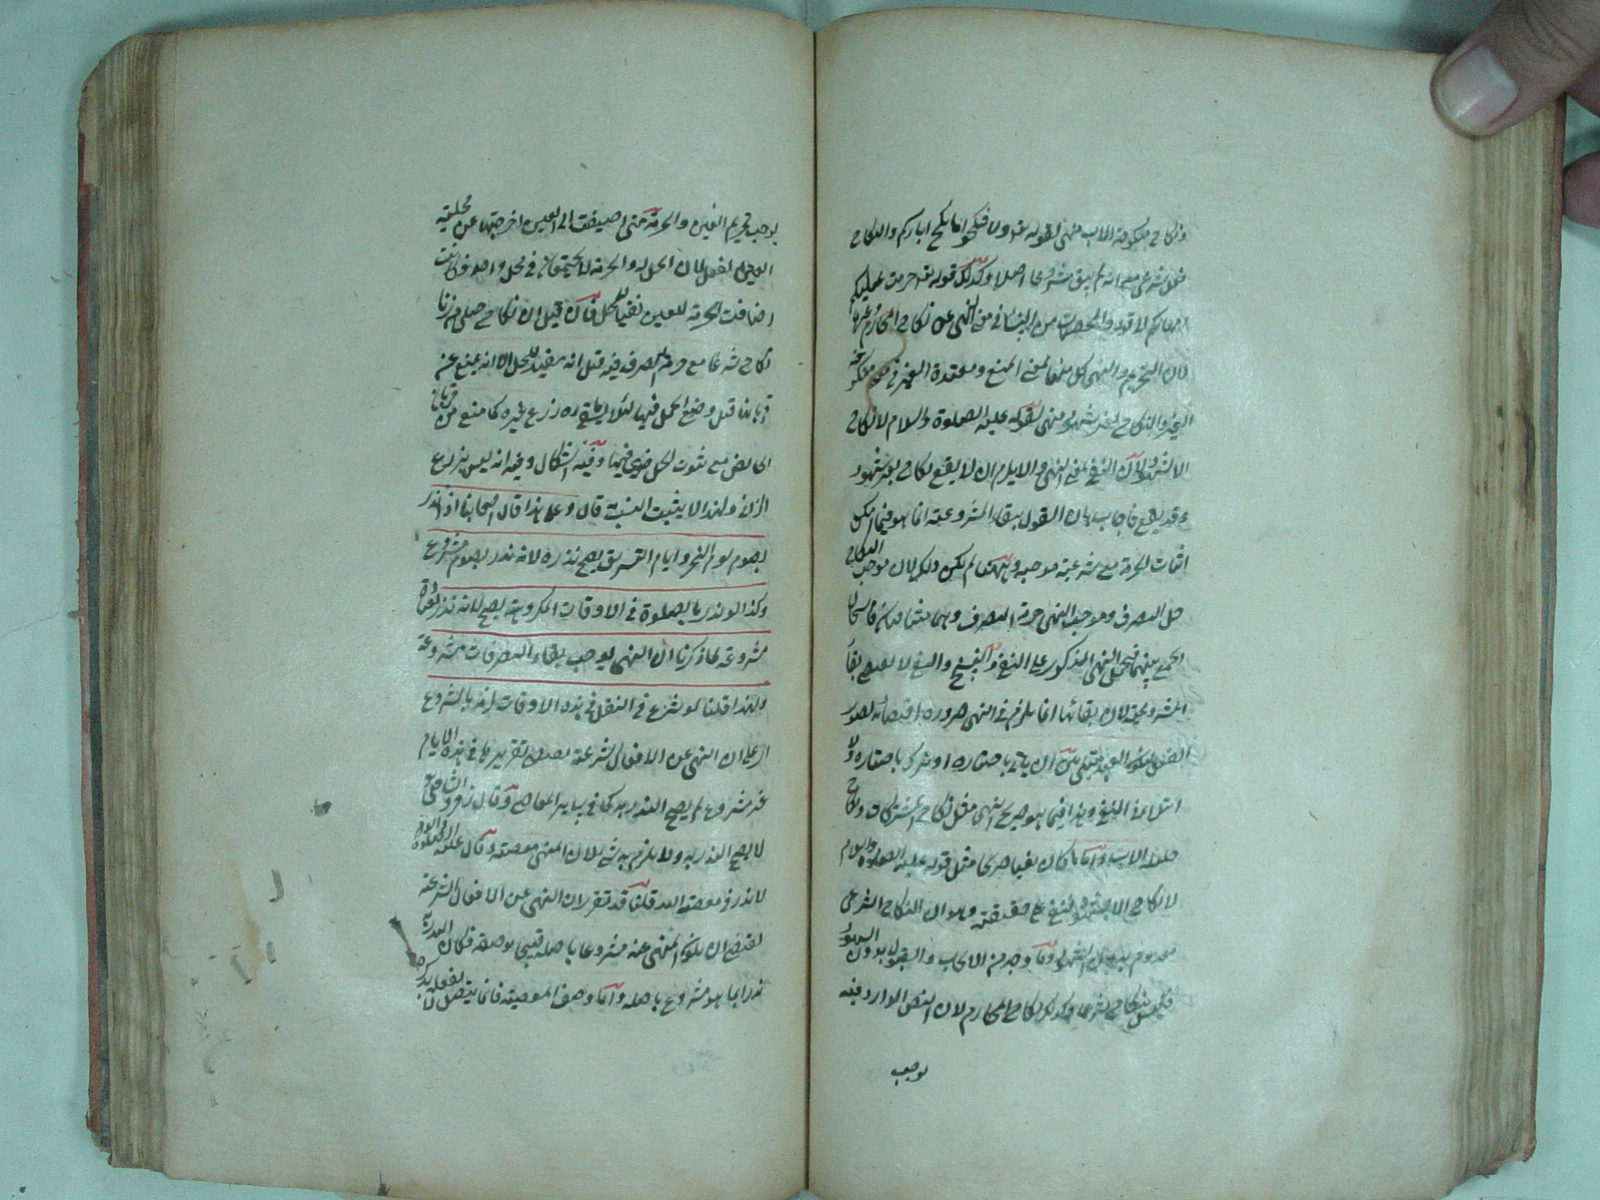 ونكاح منكوحة الاب منهى لقوله تعالى ولا تنكحوا ما نكح اباؤكم والنكاح
فعل شرعى مع انه لم يبق مشروعا اصلا وكذلك قوله تعالى حرمت عليكم
امهاتكم لا قوله والمحصنات من النساء فى من النهى عن نكاح المحارم وغيرها
لان التحريم والنهى كل منهما لمعنى المنع ومعتدة الغير فى منكوحة
الغير والنكاح بغير شهود منهى لقوله عليه الصلوة والسلام لا نكاح
الا بشهود لان النفى لمعنى النهى والا يلزم ان لا يقع نكاح بلا شهود
وقد يقع فاجاب بان القول ببقاء المشروعية انما هو فيما امكن
اثبات الحرمة مع شرعية موجبه وههنا لم يكن ذلك لان موجب النكاح
حل التصرف وموجب النهى حرمة التصرف وهى متضادان فاستحال
الجمع بينهما فيحمل النهى المذكور على النفى والنسخ والنسخ لا يقتضى بقاء
المشروعية لان بقائها انما يلزم فى النهى ضرورة اقتضائه تصور
الفعل ليكون العبد مبتلى بين ان ياتى باختياره او يترك باختياره ولا
ابتلاء فى النفى وهذا فيما هو صريح النهى مثل نكاح المشركات ونكاح
حليلة الاب واما ما كان نفيا صريحا مثل قوله عليه الصلوة والسلام
لا نكاح الا بشهود فنفى على حقيقته وهو ان النكاح الشرعى
معدوم بدون الشهود وما وجد من الايجاب والقبول بدون الشهود
فليس بنكاح شرعا وكذلك نكاح المحارم لان النص الوارد فيه
يوجب
يوجب تحريم العين والحرمة متى اضيفت الى العين اخرجتها عن محلية
الفعل لان الحل والحرمة لا يجتمعان فى محل واحد فكانت
اضافة الحرمة للعين نفيا للحل فان قيل ان نكاح حبلى من زنا
نكاح شرعا مع حرمة التصرف فيه قيل انه مفيد للحل الا انه يمنع عن
قربانها قبل وضع الحمل فيها لئلا يسقى ماءه زرع غيره كما منع من قربان
الحائض مع ثبوت الحل فيها وفيه اشكال وفيه انه ليس بزرع
الزانى ولهذا لا يثبت النسب قال وعلى هذا قال اصحابنا اذا نذر
بصوم يوم النحر وايام التشريق يصح نذره لانه نذر بصوم مشروع
وكذا لو نذر بالصلوة فى الاوقات المكروهة يصح لانه نذر بعبادة
مشروعة لما ذكرنا ان النهى يوجب بقاء التصرفات مشروعة
ولهذا قلنا لو شرع فى النفل فى هذه الاوقات لزمه بالشروع
ان النهى عن الافعال الشرعية يقتضى تقريرها فى هذه الايام
غير مشروع لم يصح النذر به كما فى سائر المعاصى وقال زفر والشافعى
لا يصح النذر به ولا يلزم به شئ لان المنهى معصية وقال عليه الصلوة والسلام
لا نذر فى معصية الله قلنا قد تقرر ان النهى عن الافعال الشرعية
يقتضى ان يكون المنهى عنه مشروعا باصله قبيحا بوصفه فكان النذر به
نذرا بما هو مشروع باصله واما وصف المعصية فانما يتصل بفعله لا بذكره